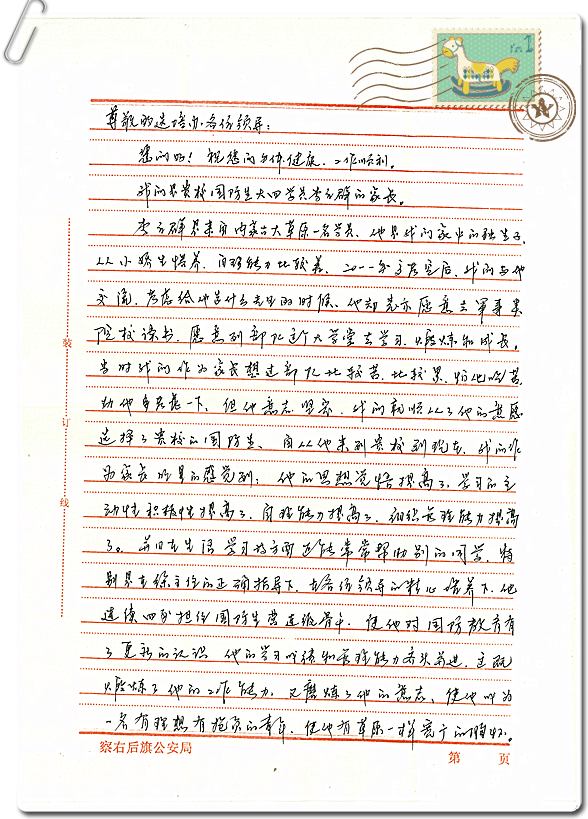 尊敬的选培办各位领导：
您们好！祝您们身体健康，工作顺利。
我们是贵校国防生大四学员李立群的家长。
李立群是来自内蒙古大草原一名学员，他是我们家中的独生子，
从小娇生惯养，自理能力比较差，2011年高考完后，我们与他
交流，考虑给他选什么专业的时候，他却表示愿意去军事类
院校读书，愿意到部队这个大学堂去学习、锻炼和成长。
当时我们作为家长想过部队比较苦、比较累，怕他吃苦，
劝他多考虑一下，但他意志坚定，我们就顺从了他的意愿
选择了贵校的国防生，自从他来到贵校到现在，我们作
为家长明显的感觉到：他的思想觉悟提高了，学习的主
动性积极性提高了，自理能力提高了，组织管理能力提高
了。并且在生活学习等方面还能常常帮助别的同学，特
别是在徐主任的正确指导下，在各位领导的精心培养下，他
连续四年担任国防生营连级骨干，使他对国防教育有
了更新的认识，他的学习成绩和管理能力齐头并进，这既
锻炼了他的工作能力，又磨炼了他的意志，使他成为
一名有理想有抱负的青年，使他有草原一样宽广的胸怀。
装
订
线
察右后旗公安局
第 页
1